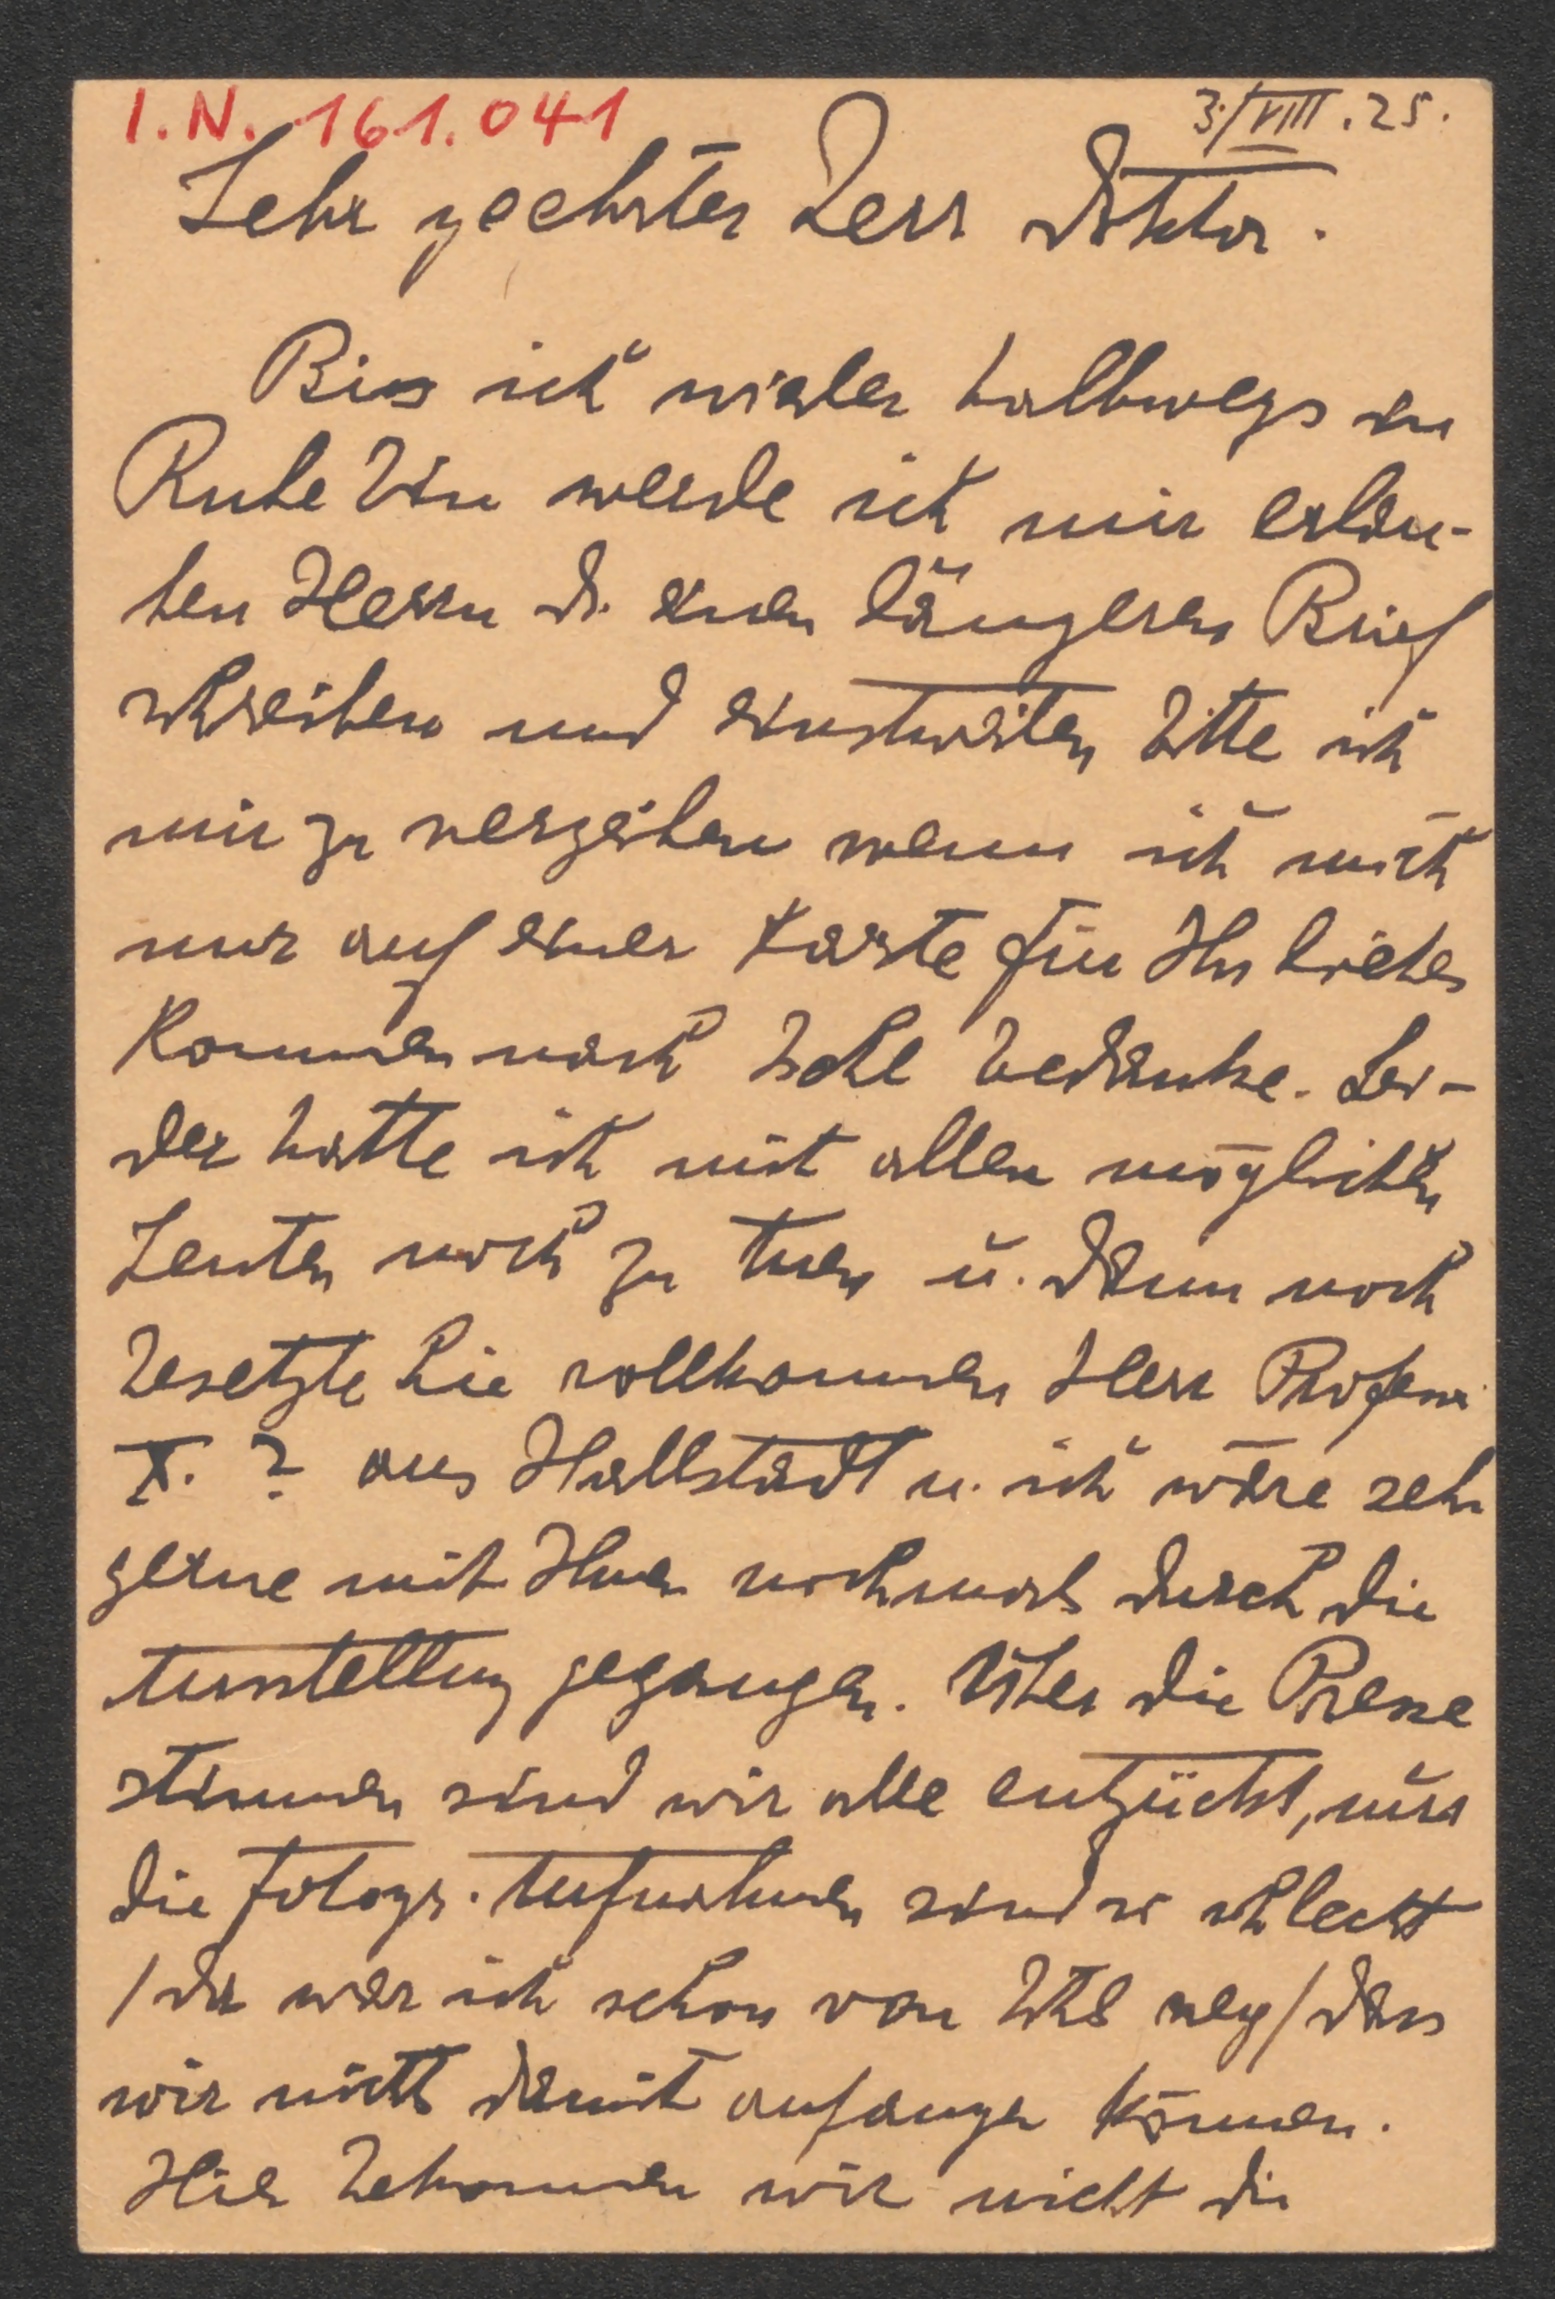 I.N. 161.041
3./VIII.25.
Sehr geehrter Herr Doktor.
Bis ich wieder halbwegs in
Ruhe bin werde ich mir erlau-
ben Herrn Dr. einen längeren Brief
schreiben und einstweilen bitte ich
mir zu verzeihen wenn ich mich
nur auf einer Karte für Ihr liebes
Kommen nach Ischl bedanke. Lei-
der hatte ich mit allen möglichen
Leuten noch zu tuen u. dann noch
besetzte Sie vollkommen Herr Professor
X. ? aus Hallstadt u. ich wäre sehr
gerne mit Ihnen nochmals durch die
Ausstellung gegangen. Über die Presse
stimmen sind wir alle entzückt, nur
die fotogr. Aufnahmen sind so schlecht
/ da war ich schon von Ischl weg / dass
wir nichts damit anfangen können.
Hier bekommen wir nicht die